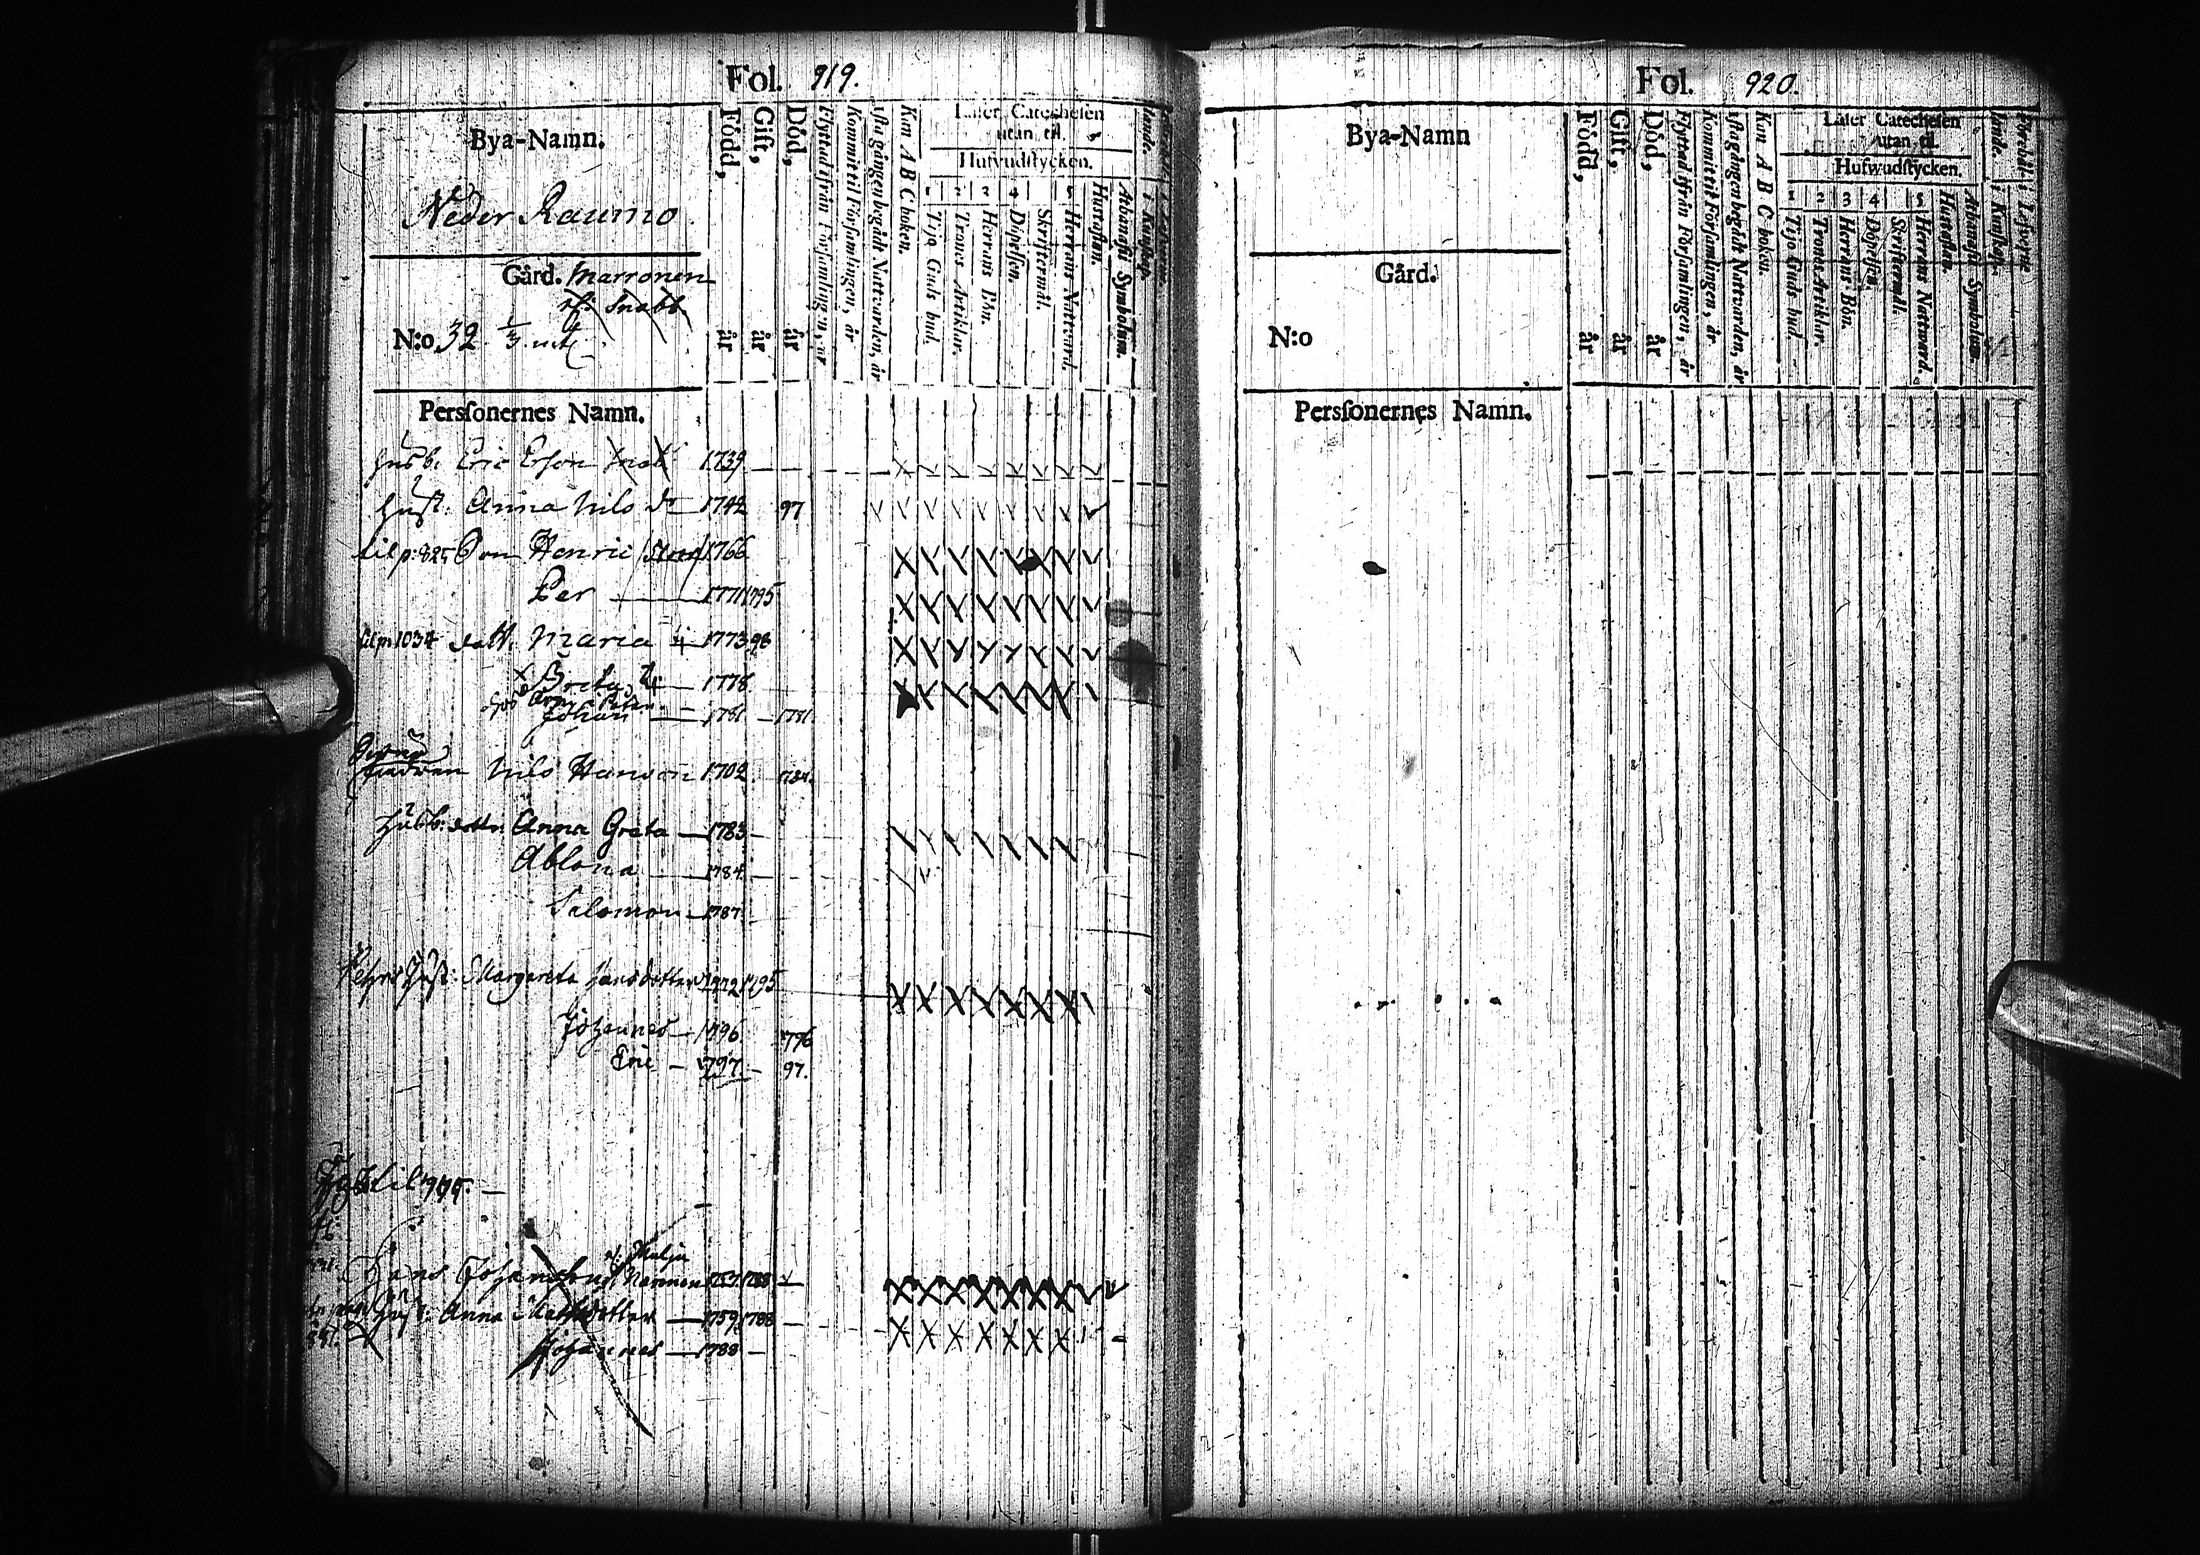 Fol. 919.
Bya-Namn.
Neder Raumo
Gård. Marronen
Snabb
N:o 32 1/3 mtl
Född, år
Gift, år
Död, år
Flyttad ifrån Församlingen, år
Kommit til Församlingen, år
1sta gången begådt Nattvarden, år
Kan A B C boken.
Läser Catechesen
utan til.
Hufvudstycken.
1 2 3 4 5
Tijo Guds bud.
Trones Artiklar.
Herrans Bön.
Döpelsen.
Skriftermål.
Herrans Nattvard.
Hustaflan.
Athanasii Symbolum.
Personernes Namn.
Husb. Eric Erson Snab 1739
Hust. Anna Nils dr 1742 97
til p: 825 Son Henric 1766
Per 1771 1795
til p 1034 dott. Maria 1773 98
Breta 1778
Johan 1781 1781
Nils Hanson 1702 1784
Husb: dottr. Anna Greta 1783
Ablona 1784
Salomon 1787
Pehrs Hust: Margareta Hansdotter 1772 1795
Johannes 1796 1796
Eric 1797 97.
Hans Johansson 1757 1788
Hust: Anna Mattsdotter 1759 1788
Johannes 1788
Fol. 920.
Bya-Namn
Gård.
N:o
Född, år
Gift, år
Död, år
Flyttad ifrån Församlingen, år
Kommit til Församlingen, år
1sta gången begådt Nattvarden, år
Kan A B C boken.
Läser Catechesen
utan til.
Hufwudstycken.
1 2 3 4 5
Tijo Guds bud.
Trones Artiklar.
Herrans Bön.
Döpelsen.
Skriftermål.
Herrans Nattward.
Hustaflan.
Athanasii Symbolum.
Personernes Namn.